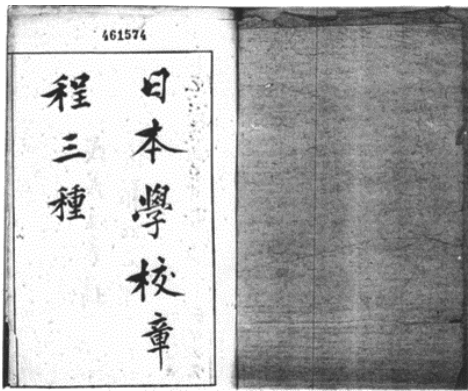 461574
日本學校章
程三種